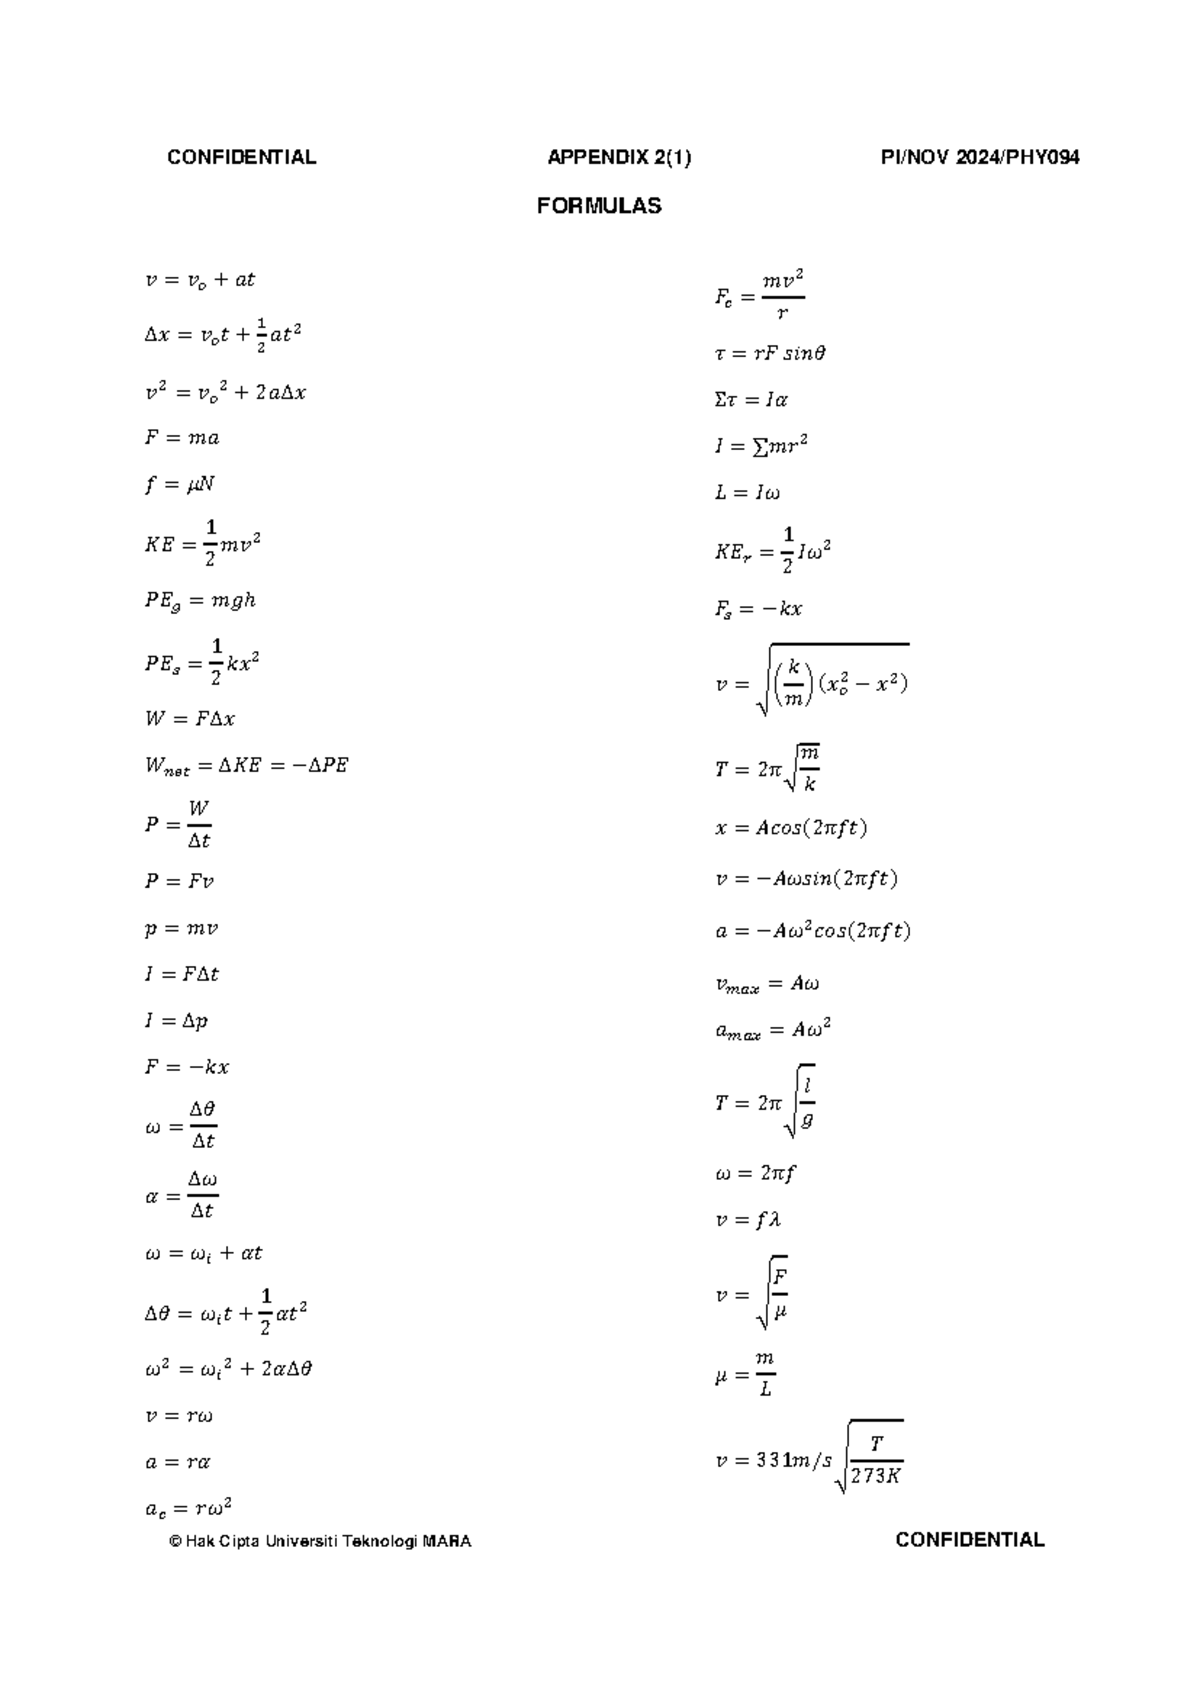 CONFIDENTIAL APPENDIX 2(1) PI/NOV 2024/PHY094
FORMULAS
v = v₀ + at
Δx = v₀t + ½at²
v² = v₀² + 2aΔx
F = ma
f = μN
KE = ½mv²
PE_g = mgh
PE_s = ½kx²
W = FΔx
W_net = ΔKE = −ΔPE
P = W/Δt
P = Fv
p = mv
I = FΔt
I = Δp
F = −kx
ω = Δθ/Δt
α = Δω/Δt
ω = ω_i + αt
Δθ = ω_i t + ½αt²
ω² = ω_i² + 2αΔθ
v = rω
a = rα
a_c = rω²
F_c = mv²/r
τ = rF sinθ
Στ = Iα
I = ∑mr²
L = Iω
KE_r = ½Iω²
F_s = −kx
v = √((k/m)(x₀² − x²))
T = 2π√(m/k)
x = Acos(2πft)
v = −Aωsin(2πft)
a = −Aω²cos(2πft)
v_max = Aω
a_max = Aω²
T = 2π√(l/g)
ω = 2πf
v = fλ
v = √(F/μ)
μ = m/L
v = 331m/s√(T/273K)
© Hak Cipta Universiti Teknologi MARA CONFIDENTIAL